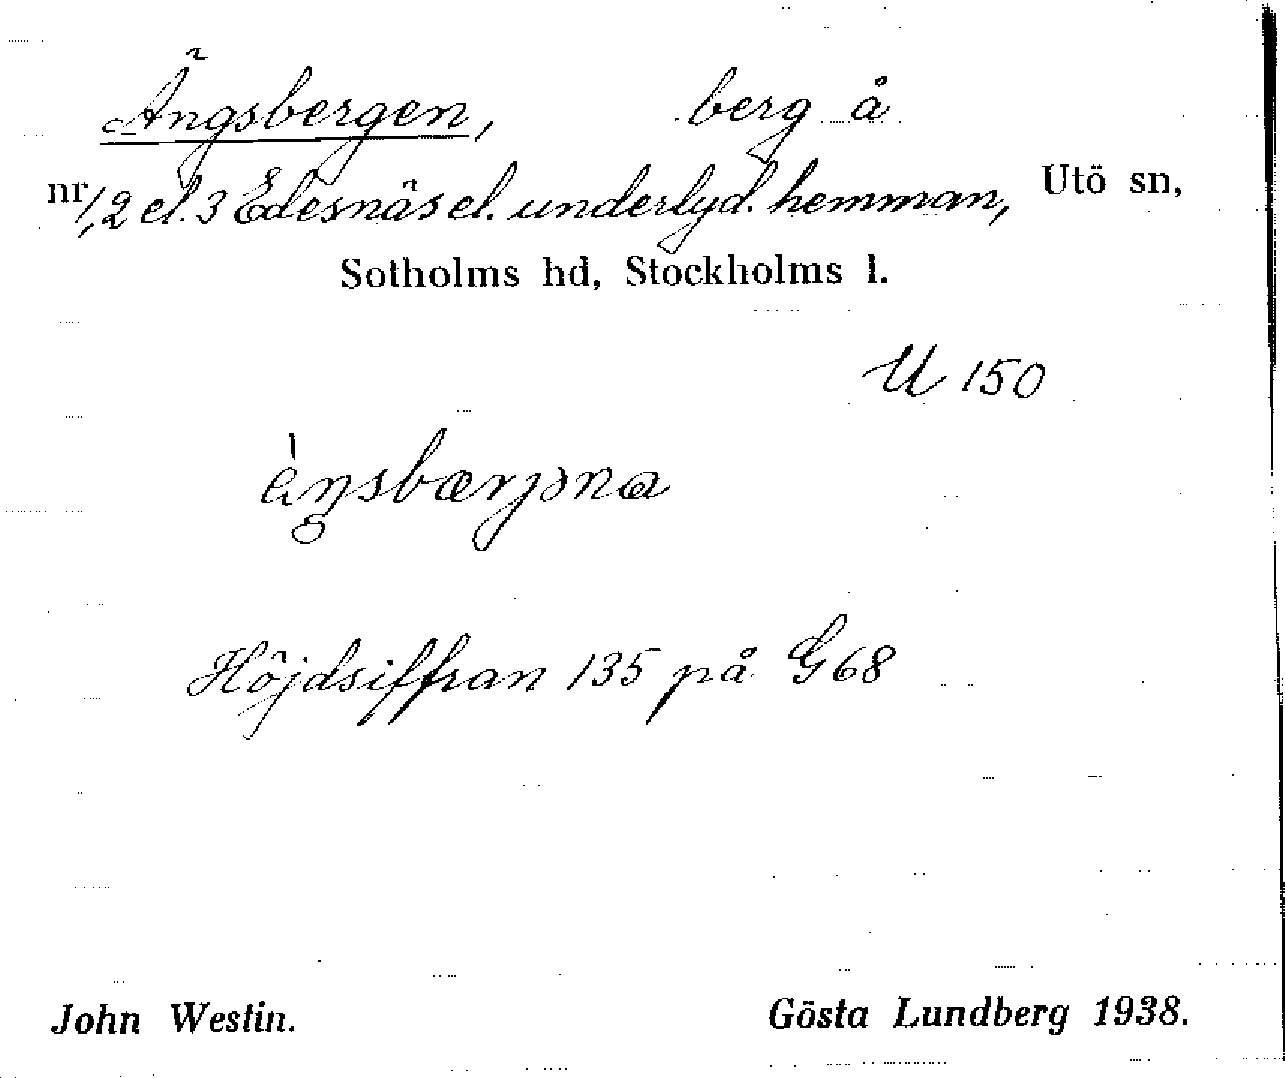 Ängsbergen, berg å
nr 1, 2 el. 3 Edesnäs el. underlyd. hemman, Utö sn,
Sotholms hd, Stockholms l.
U 150
Höjdsiffran 135 på G 68
John Westin. Gösta Lundberg 1938.